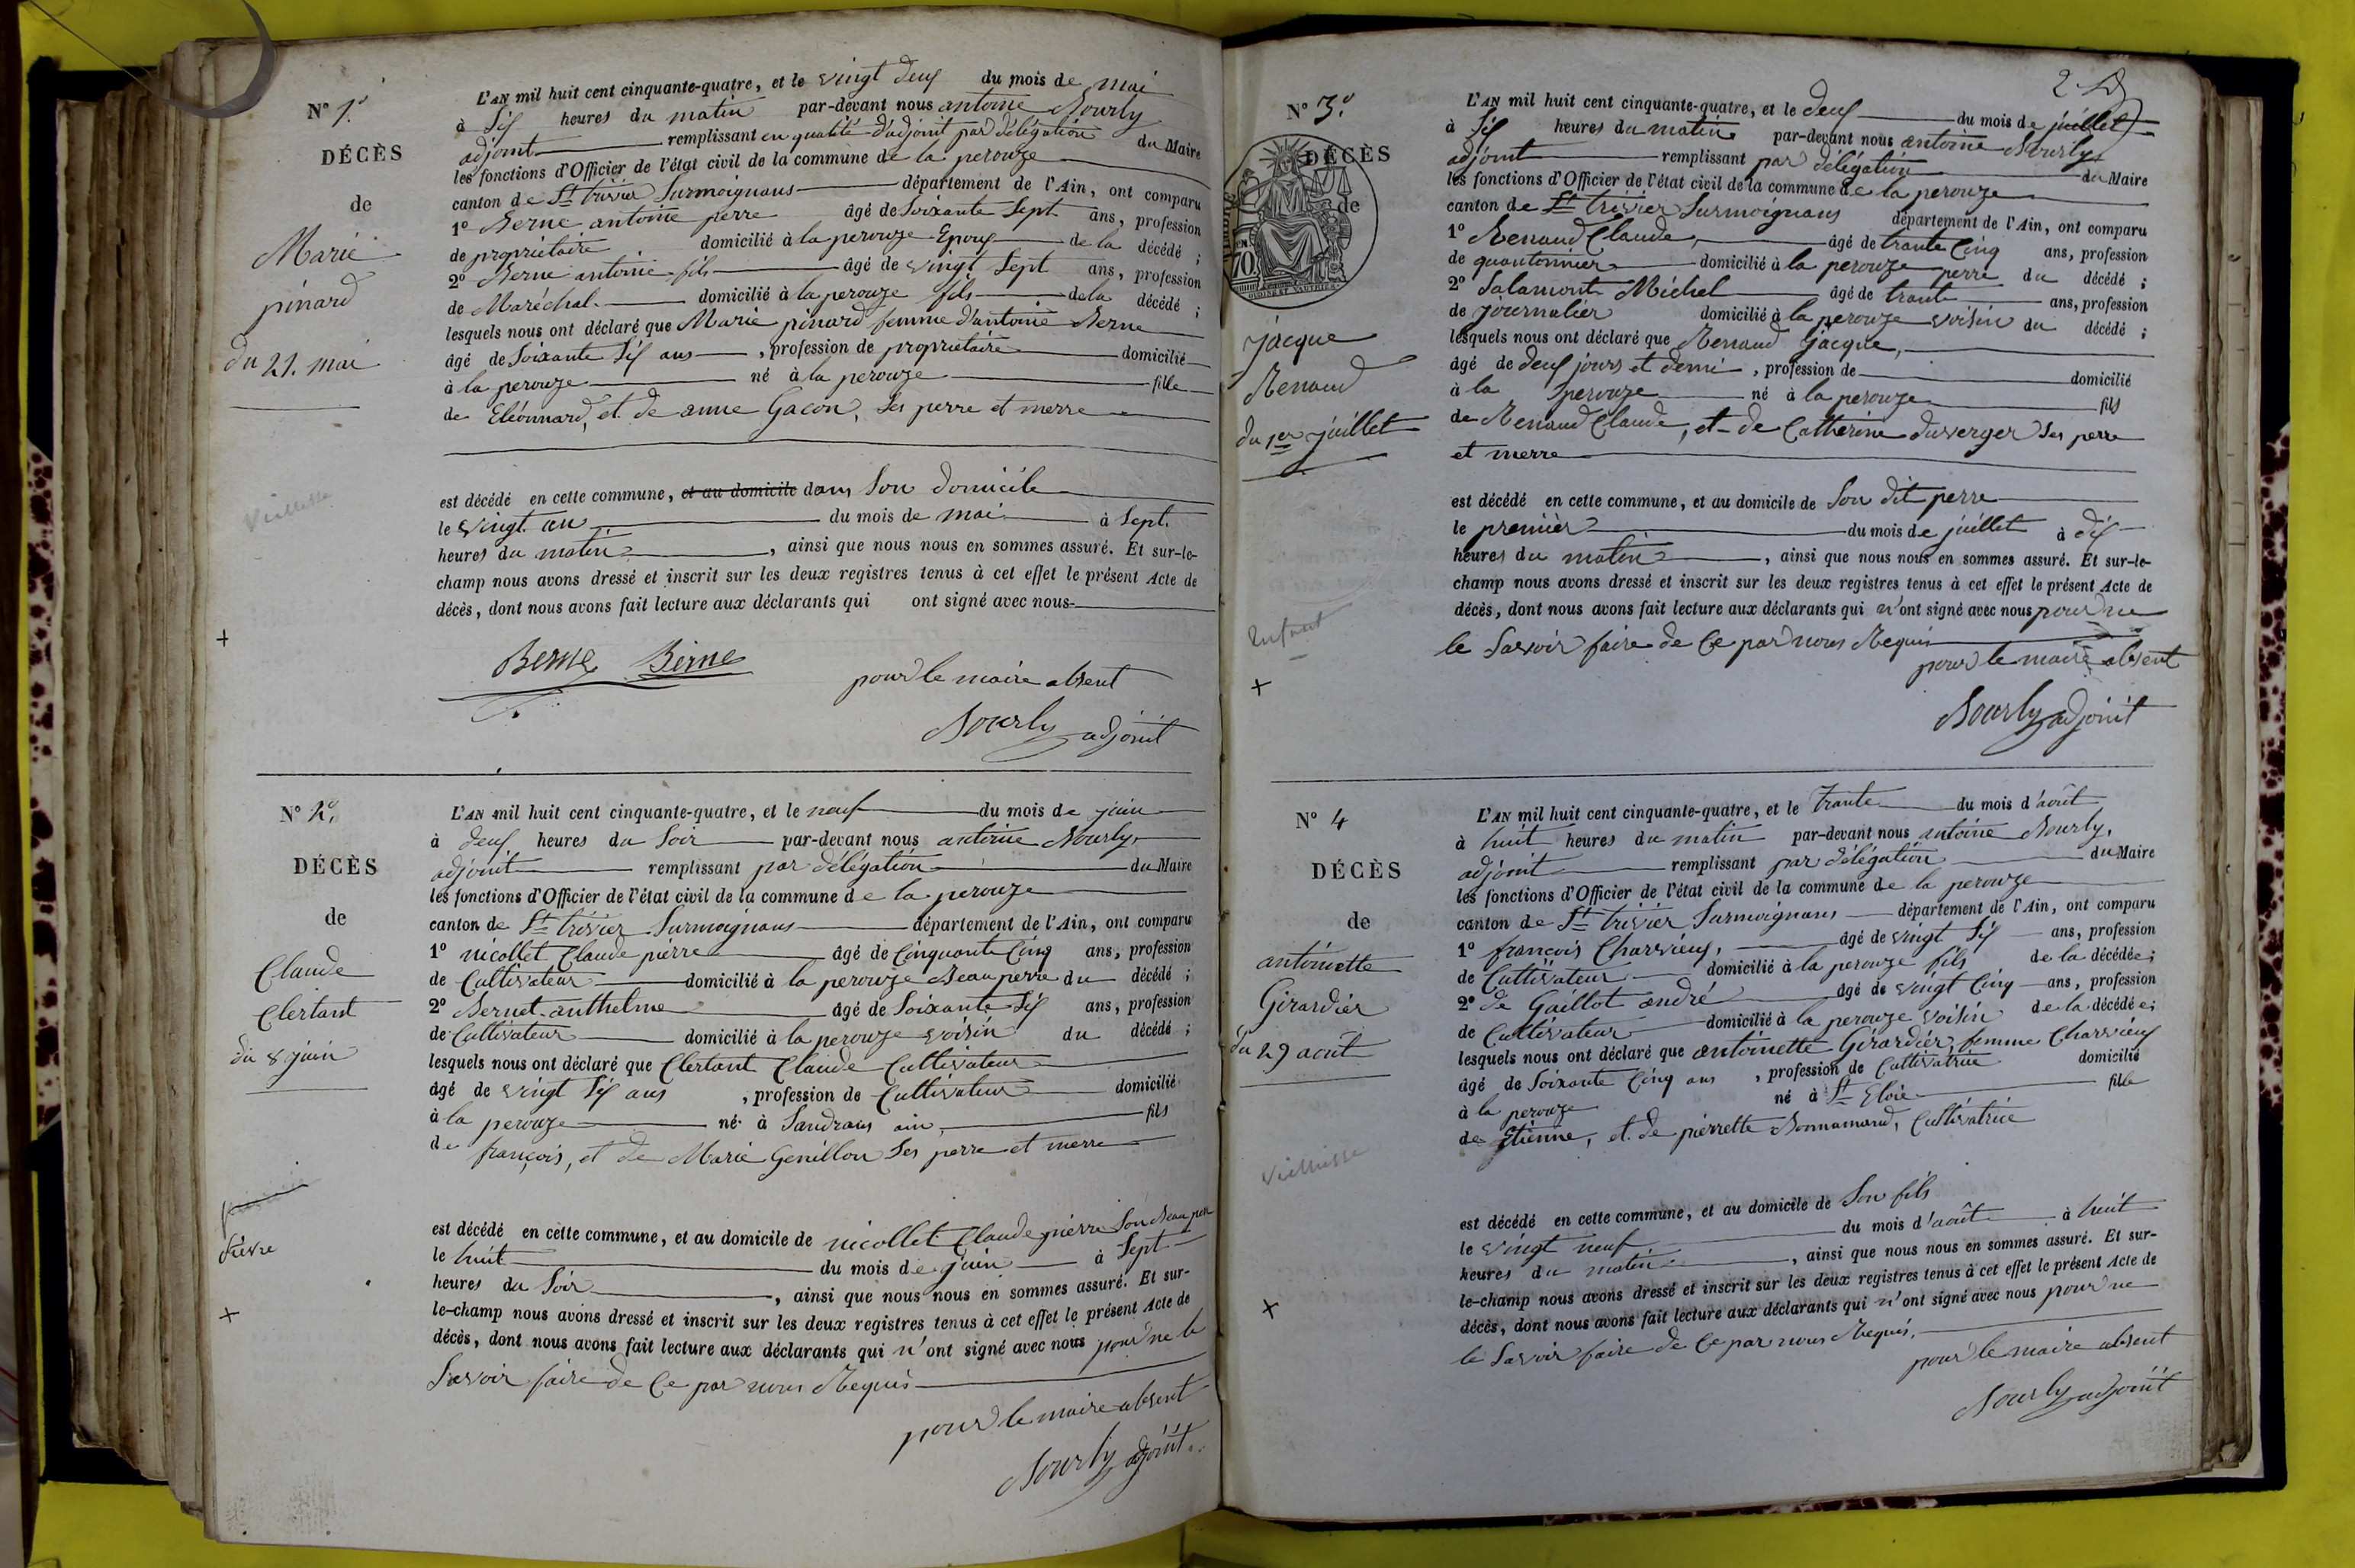 N° 1.°
DÉCÈS
de
Marie
pinard
du 21. mai
Vieillesse
L'AN mil huit cent cinquante-quatre, et le vingt deux du mois de mai
à six heures du matin par-devant nous antoine Bourly
adjoint remplissant en qualité d'adjoint par délégation du Maire
les fonctions d'Officier de l'état civil de la commune de la perouze
canton de St trivier Surmoignans département de l'Ain, ont comparu
1° Berne antoine perre âgé de Soixante Sept ans, profession
de propriétaire domicilié à la perouze Epoux de la décédé ;
2° Berne antoine fils âgé de vingt Sept ans, profession
de Maréchal domicilié à la perouze fils de la décédé ;
lesquels nous ont déclaré que Marie pinard femme d'antoine Berne
âgé de Soixante Six ans, profession de propriétaire domicilié
à la perouze né à la perouze fille
de Eléonnard, et de anne Gacon, Ses perre et merre
est décédé en cette commune, et au domicile dans Son domicile
le vingt un du mois de mai à Sept
heures du matin, ainsi que nous nous en sommes assuré. Et sur-le-
champ nous avons dressé et inscrit sur les deux registres tenus à cet effet le présent Acte de
décès, dont nous avons fait lecture aux déclarants qui ont signé avec nous
Berne Berne
pour le maire absent
Bourly adjoint
N° 2.°
DÉCÈS
de
Claude
Clertant
du 8 juin
fièvre
L'AN mil huit cent cinquante-quatre, et le neuf du mois de juin
à deux heures du Soir par-devant nous antoine Bourly,
adjoint remplissant par délégation du Maire
les fonctions d'Officier de l'état civil de la commune de la perouze
canton de St trivier Surmoignans département de l'Ain, ont comparu
1° nicollet Claude pierre âgé de Cinquante Cinq ans, profession
de Cultivateur domicilié à la perouze Beau perre du décédé ;
2° Bernet anthelme âgé de Soixante Six ans, profession
de Cultivateur domicilié à la perouze voisin du décédé ;
lesquels nous ont déclaré que Clertant Claude Cultivateur
âgé de vingt Six ans, profession de Cultivateur domicilié
à la perouze né à Sandrans ain, fils
de françois, et de Marie Genillon Ses perre et merre
est décédé en cette commune, et au domicile de nicollet Claude pierre Son Beau perre
le huit du mois de juin à Sept
heures du Soir, ainsi que nous nous en sommes assuré. Et sur-
le-champ nous avons dressé et inscrit sur les deux registres tenus à cet effet le présent Acte de
décès, dont nous avons fait lecture aux déclarants qui n'ont signé avec nous pour ne le
Savoir faire de Ce par nous Requis
pour le maire absent
Bourly adjoint
2
N° 3.°
DÉCÈS
de
jacque
Renaud
du 1er juillet
Enfant
L'AN mil huit cent cinquante-quatre, et le deux du mois de juillet
à Six heures du matin par-devant nous antoine Bourly
adjoint remplissant par délégation du Maire
les fonctions d'Officier de l'état civil de la commune de la perouze
canton de St trivier Surmoignans département de l'Ain, ont comparu
1° Renaud Claude, âgé de trante Cinq ans, profession
de quantonnier domicilié à la perouze perre du décédé ;
2° Salamont Michel âgé de trante ans, profession
de journalier domicilié à la perouze voisin du décédé ;
lesquels nous ont déclaré que Renaud jacque,
âgé de deux jours et demi, profession de domicilié
à la perouze né à la perouze fils
de Renaud Claude, et de Catherine duverger Ses perre
et merre
est décédé en cette commune, et au domicile de Son dit perre
le premier du mois de juillet à dix
heures du matin, ainsi que nous nous en sommes assuré. Et sur-le-
champ nous avons dressé et inscrit sur les deux registres tenus à cet effet le présent Acte de
décès, dont nous avons fait lecture aux déclarants qui n'ont signé avec nous pour ne
le Savoir faire de Ce par nous Requis
pour le maire absent
Bourly adjoint
N° 4
DÉCÈS
de
antoinette
Girardier
du 29 août
Vieillesse
L'AN mil huit cent cinquante-quatre, et le trante du mois d'août
à huit heures du matin par-devant nous antoine Bourly,
adjoint remplissant par délégation du Maire
les fonctions d'Officier de l'état civil de la commune de la perouze
canton de St trivier Surmoignans département de l'Ain, ont comparu
1° françois Charvieux, âgé de vingt Six ans, profession
de Cultivateur domicilié à la perouze fils de la décédée ;
2° de Gaillot andré âgé de vingt Cinq ans, profession
de Cultivateur domicilié à la perouze voisin de la décédée ;
lesquels nous ont déclaré que antoinette Girardier femme Charvieux
âgé de Soixante Cinq ans, profession de Cultivatrice domicilié
à la perouze né à St Eloie fille
de Etienne, et de pierrette Bonnamand, Cultivatrice
est décédé en cette commune, et au domicile de Son fils
le vingt neuf du mois d'août à huit
heures du matin, ainsi que nous nous en sommes assuré. Et sur-
le-champ nous avons dressé et inscrit sur les deux registres tenus à cet effet le présent Acte de
décès, dont nous avons fait lecture aux déclarants qui n'ont signé avec nous pour ne
le Savoir faire de Ce par nous Requis,
pour le maire absent
Bourly adjoint